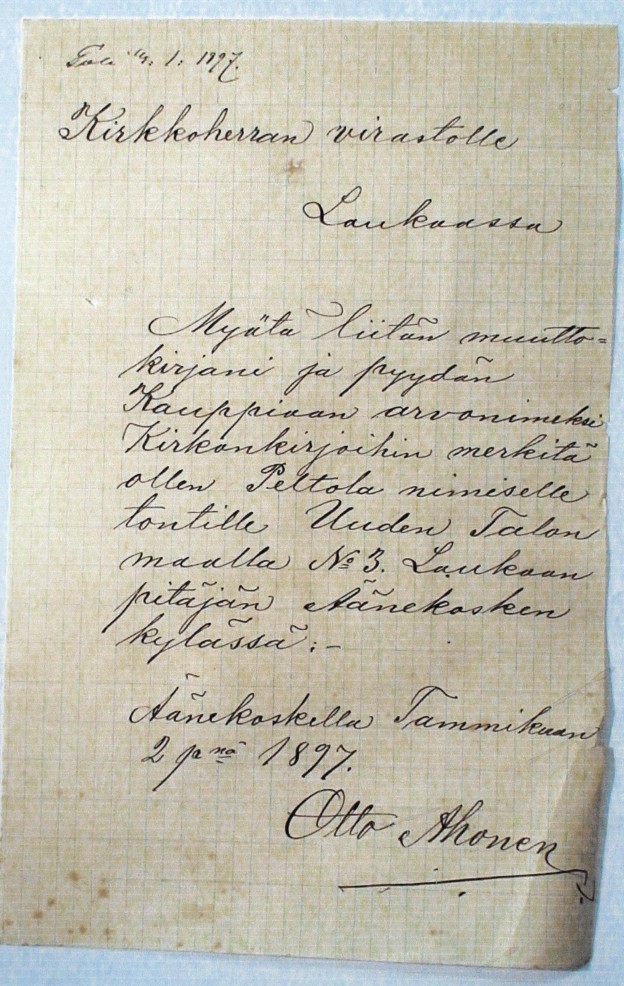 1: 1897.
Kirkkoherran virastolle
Laukaassa
Myötä liitän muutto=
kirjani ja pyydän
Kauppiaan arvonimeksi
Kirkonkirjoihin merkitä
ollen Peltola nimiselle
tontille Uuden Talon
maalla No 3. Laukaan
pitäjän Äänekosken
kylässä:-
Äänekoskella Tammikuun
2 pnä 1897.
Otto Ahonen